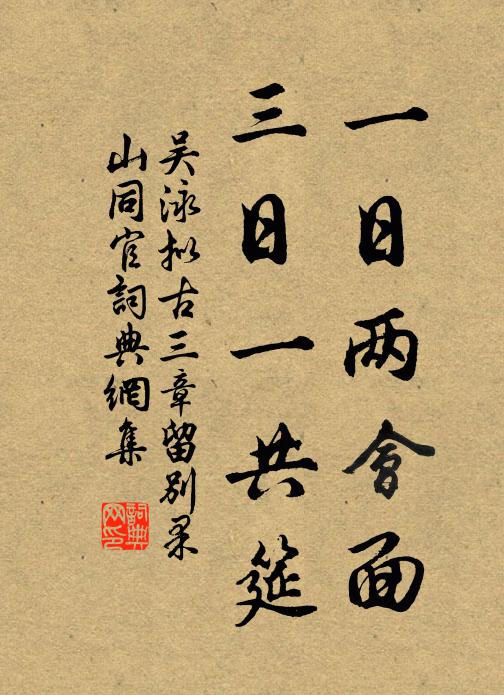 一日两會面
三日一共筵
吴泳拟古三章留别果
山同官詞典網集
詞典网印